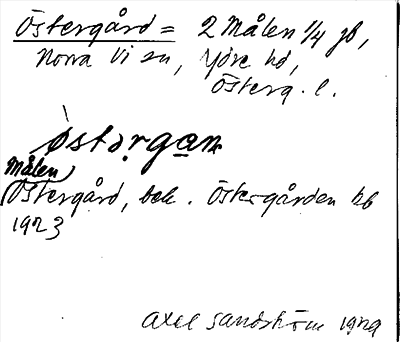 Östergård = 2 Målen 1/4 jb,
Norra Vi sn, Ydre hd,
Österg. l.
östərgan
Målen
Östergård, bek. Östergården hb
1923
Axel Sandström 1929